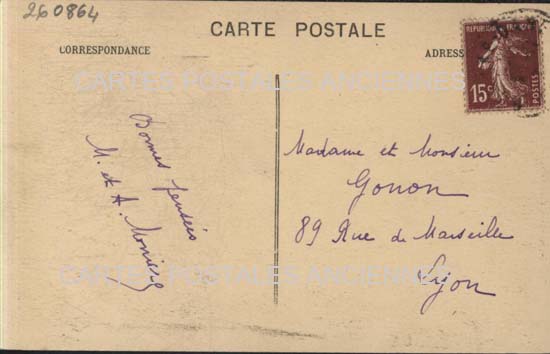 260864
CARTE POSTALE
CORRESPONDANCE
ADRESS
REPUBLIQUE FRANÇAISE
15c
POSTES
CARTES POSTALES ANCIENNES
Bonnes pensées
M. et A.
Madame et Monsieur
Gonon
89 Rue de Marseille
Lyon
CARTES POSTALES ANCIENNES